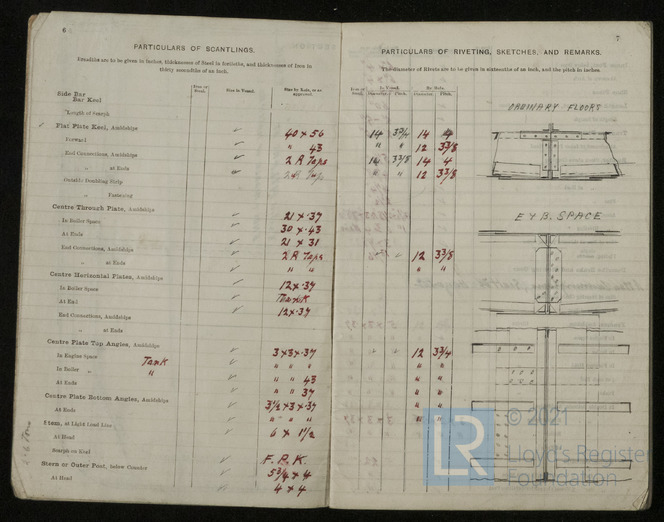 6
PARTICULARS OF SCANTLINGS.
Breadths are to be given in inches, thicknesses of Steel in fortieths, and thicknesses of Iron in
thirty seconds of an inch.
Iron or Steel. Size in Vessel. Size by Rule, or as approved.
Side Bar
Bar Keel
Length of Scarph
Flat Plate Keel, Amidships 40 × 56
Forward " 43
End Connections, Amidships 2 R Taps
" at Ends
Outside Doubling Strip
" Fastening
Centre Through Plate, Amidships 21 × .37
In Boiler Space 30 × .43
At Ends 21 × 31
End Connections, Amidships 2 R Taps
" at Ends " "
Centre Horizontal Plates, Amidships
In Boiler Space 12 × .37
At End Tank
End Connections, Amidships 12 × .37
" at Ends
Centre Plate Top Angles, Amidships
In Engine Space 3 × 3 × .37
In Boiler " Tank " " "
At Ends " " " 43
" " 37
Centre Plate Bottom Angles, Amidships 3½ × 3 × .37
At Ends " " "
Stem, at Light Load Line 6 × 1½
At Head
Scarph on Keel
Stern or Outer Post, below Counter F. P. K.
At Head 5¾ × 4
4 × 4
7
PARTICULARS OF RIVETING, SKETCHES, AND REMARKS.
The diameter of Rivets are to be given in sixteenths of an inch, and the pitch in inches.
In Vessel. By Rule.
Diameter. Pitch. Diameter. Pitch.
14 3¾ 14 4
" " 12 3⅜
14 3⅜ 14 4
" " 12 3⅜
12 3⅜
" "
12 3¾
" "
" "
" "
" "
" "
ORDINARY FLOORS
E & B. SPACE
LR
© 2021
Lloyd's Register
Foundation